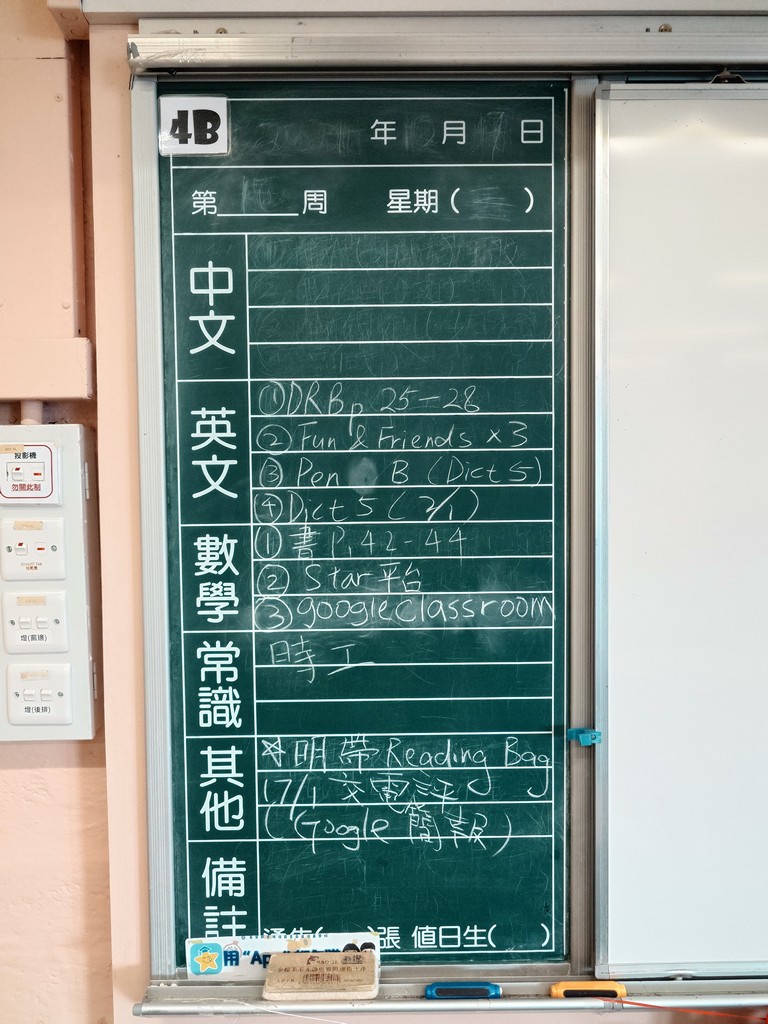 4B
年 月 日
第 周 星期( )
中文
英文
①DRB p 25-28
②Fun & Friends ×3
③Pen B (Dict 5)
④Dict 5 (2/1)
數學
①書 P.42-44
②Star平台
③googleclassroom
常識
時工
其他
明帶Reading Bag
17/1 交電評
(Google 簡報)
備註
張 值日生( )
用 "Ap
投影機
勿關此制
燈(後排)